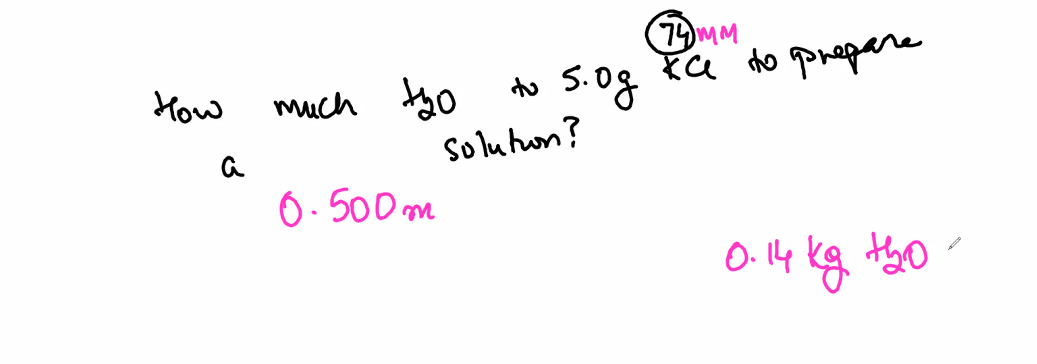 74 MM
How much H2O to 5.0g KCl to prepare
a solution?
0.500 m
0.14 kg H2O